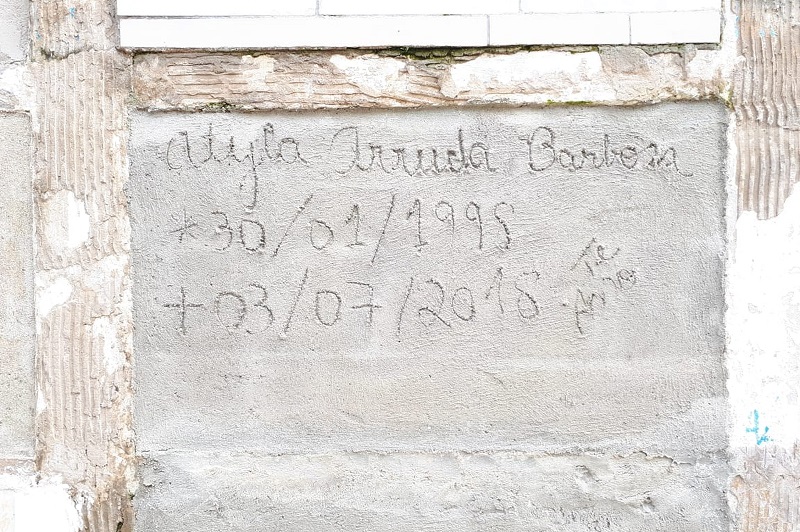 Atyla Arruda Barbosa
*30/01/1998
+03/07/2018
Te Amo